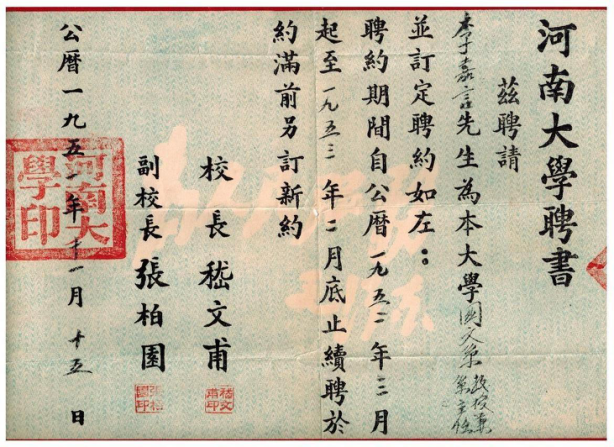 河南大學聘書
茲聘請
李嘉言先生為本大學國文系教授兼系主任
並訂定聘約如左：
聘約期間自公曆一九五二年三月
起至一九五三年二月底止續聘於
約滿前另訂新約
校長嵇文甫
嵇文甫印
副校長張柏園
張柏園印
公曆一九五一年十一月十五日
河南大學印